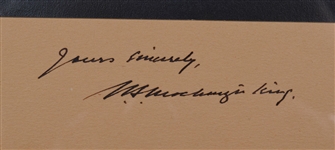 Yours sincerely,
W.L. Mackenzie King.